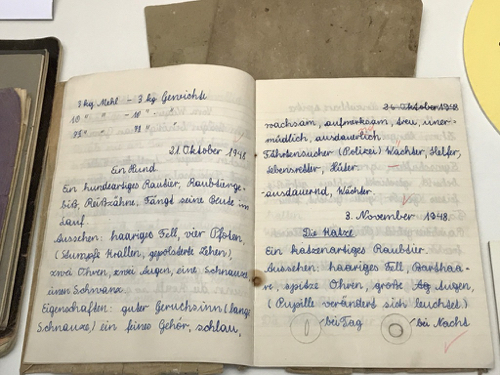 3 kg Mehl – 3 kg Gewichte
10 " " – 10 " "
71 " " 71 " "
21. Oktober 1948
Ein Hund.
Ein hundeartiges Raubtier, Raubtierge-
biß, Reißzähne. Fängt seine Beute im
Lauf.
Aussehen: haariges Fell, vier Pfoten,
(Stumpfe Krallen, gepolsterte Zehen),
zwei Ohren, zwei Augen, eine Schnauze
einen Schwanz.
Eigenschaften: guter Geruchsinn (lange
Schnauze) ein feines Gehör, schlau,
26. Oktober 1948
wachsam, aufmerksam, treu, uner-
müdlich, ausdauerlich
Fährtensucher (Polizei) Wächter, Helfer,
Lebensretter, Hüter.
ausdauernd, Wächter.
3. November 1948.
Die Katze
Ein katzenartiges Raubtier.
Aussehen: haariges Fell, Barthaa-
re, spitze Ohren, große Augen,
(Pupille verändert sich leuchtet)
bei Tag bei Nacht